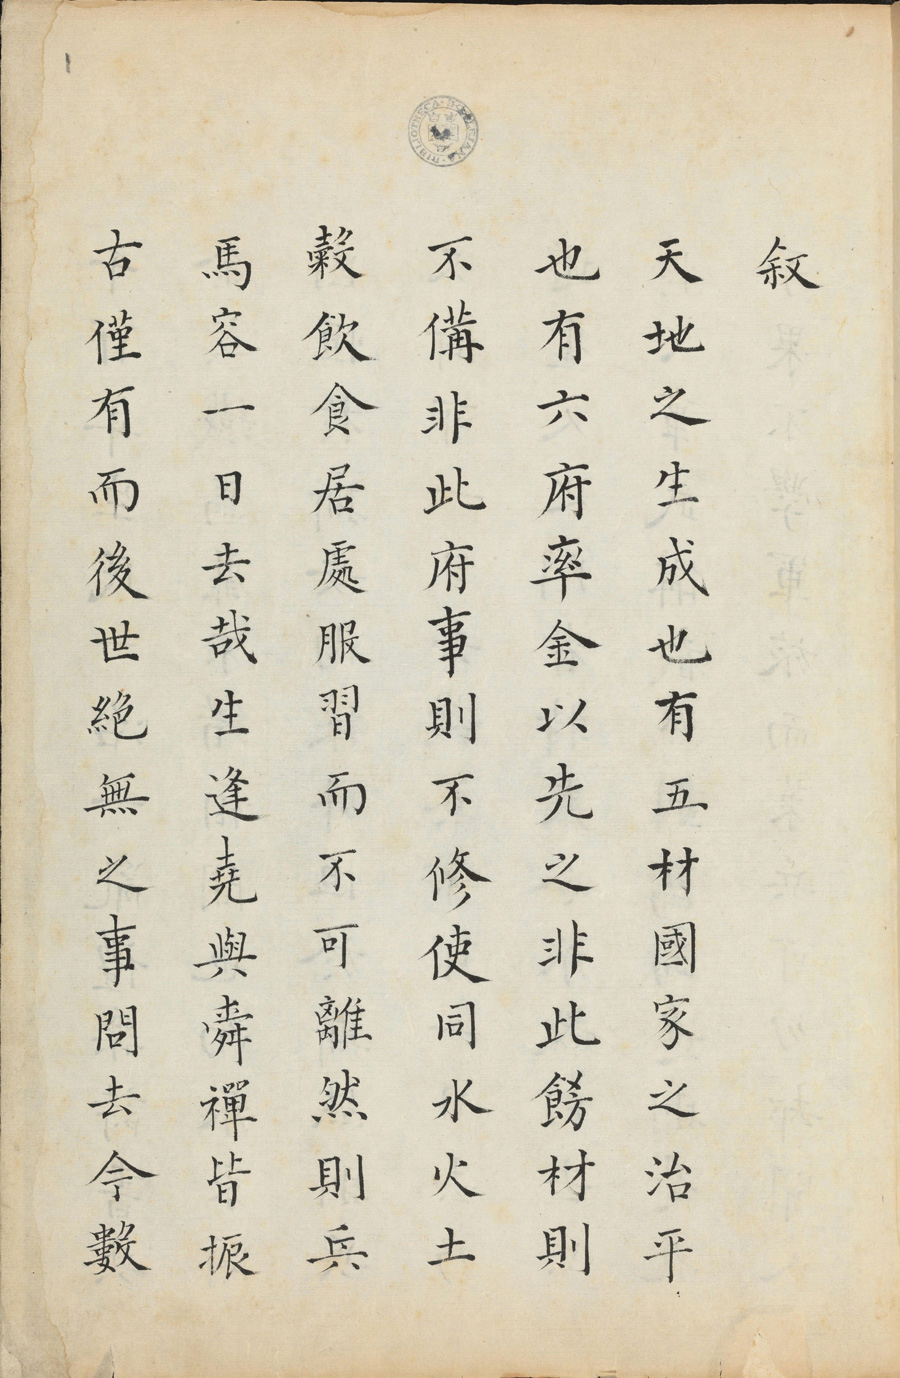 敘
天地之生成也有五材國家之治平
也有六府率金以先之非此餝材則
不備非此府事則不修使同水火土
糓飲食居處服習而不可離然則兵
馬容一日去哉生逢堯與舜禪皆振
古僅有而後世絕無之事問去今數